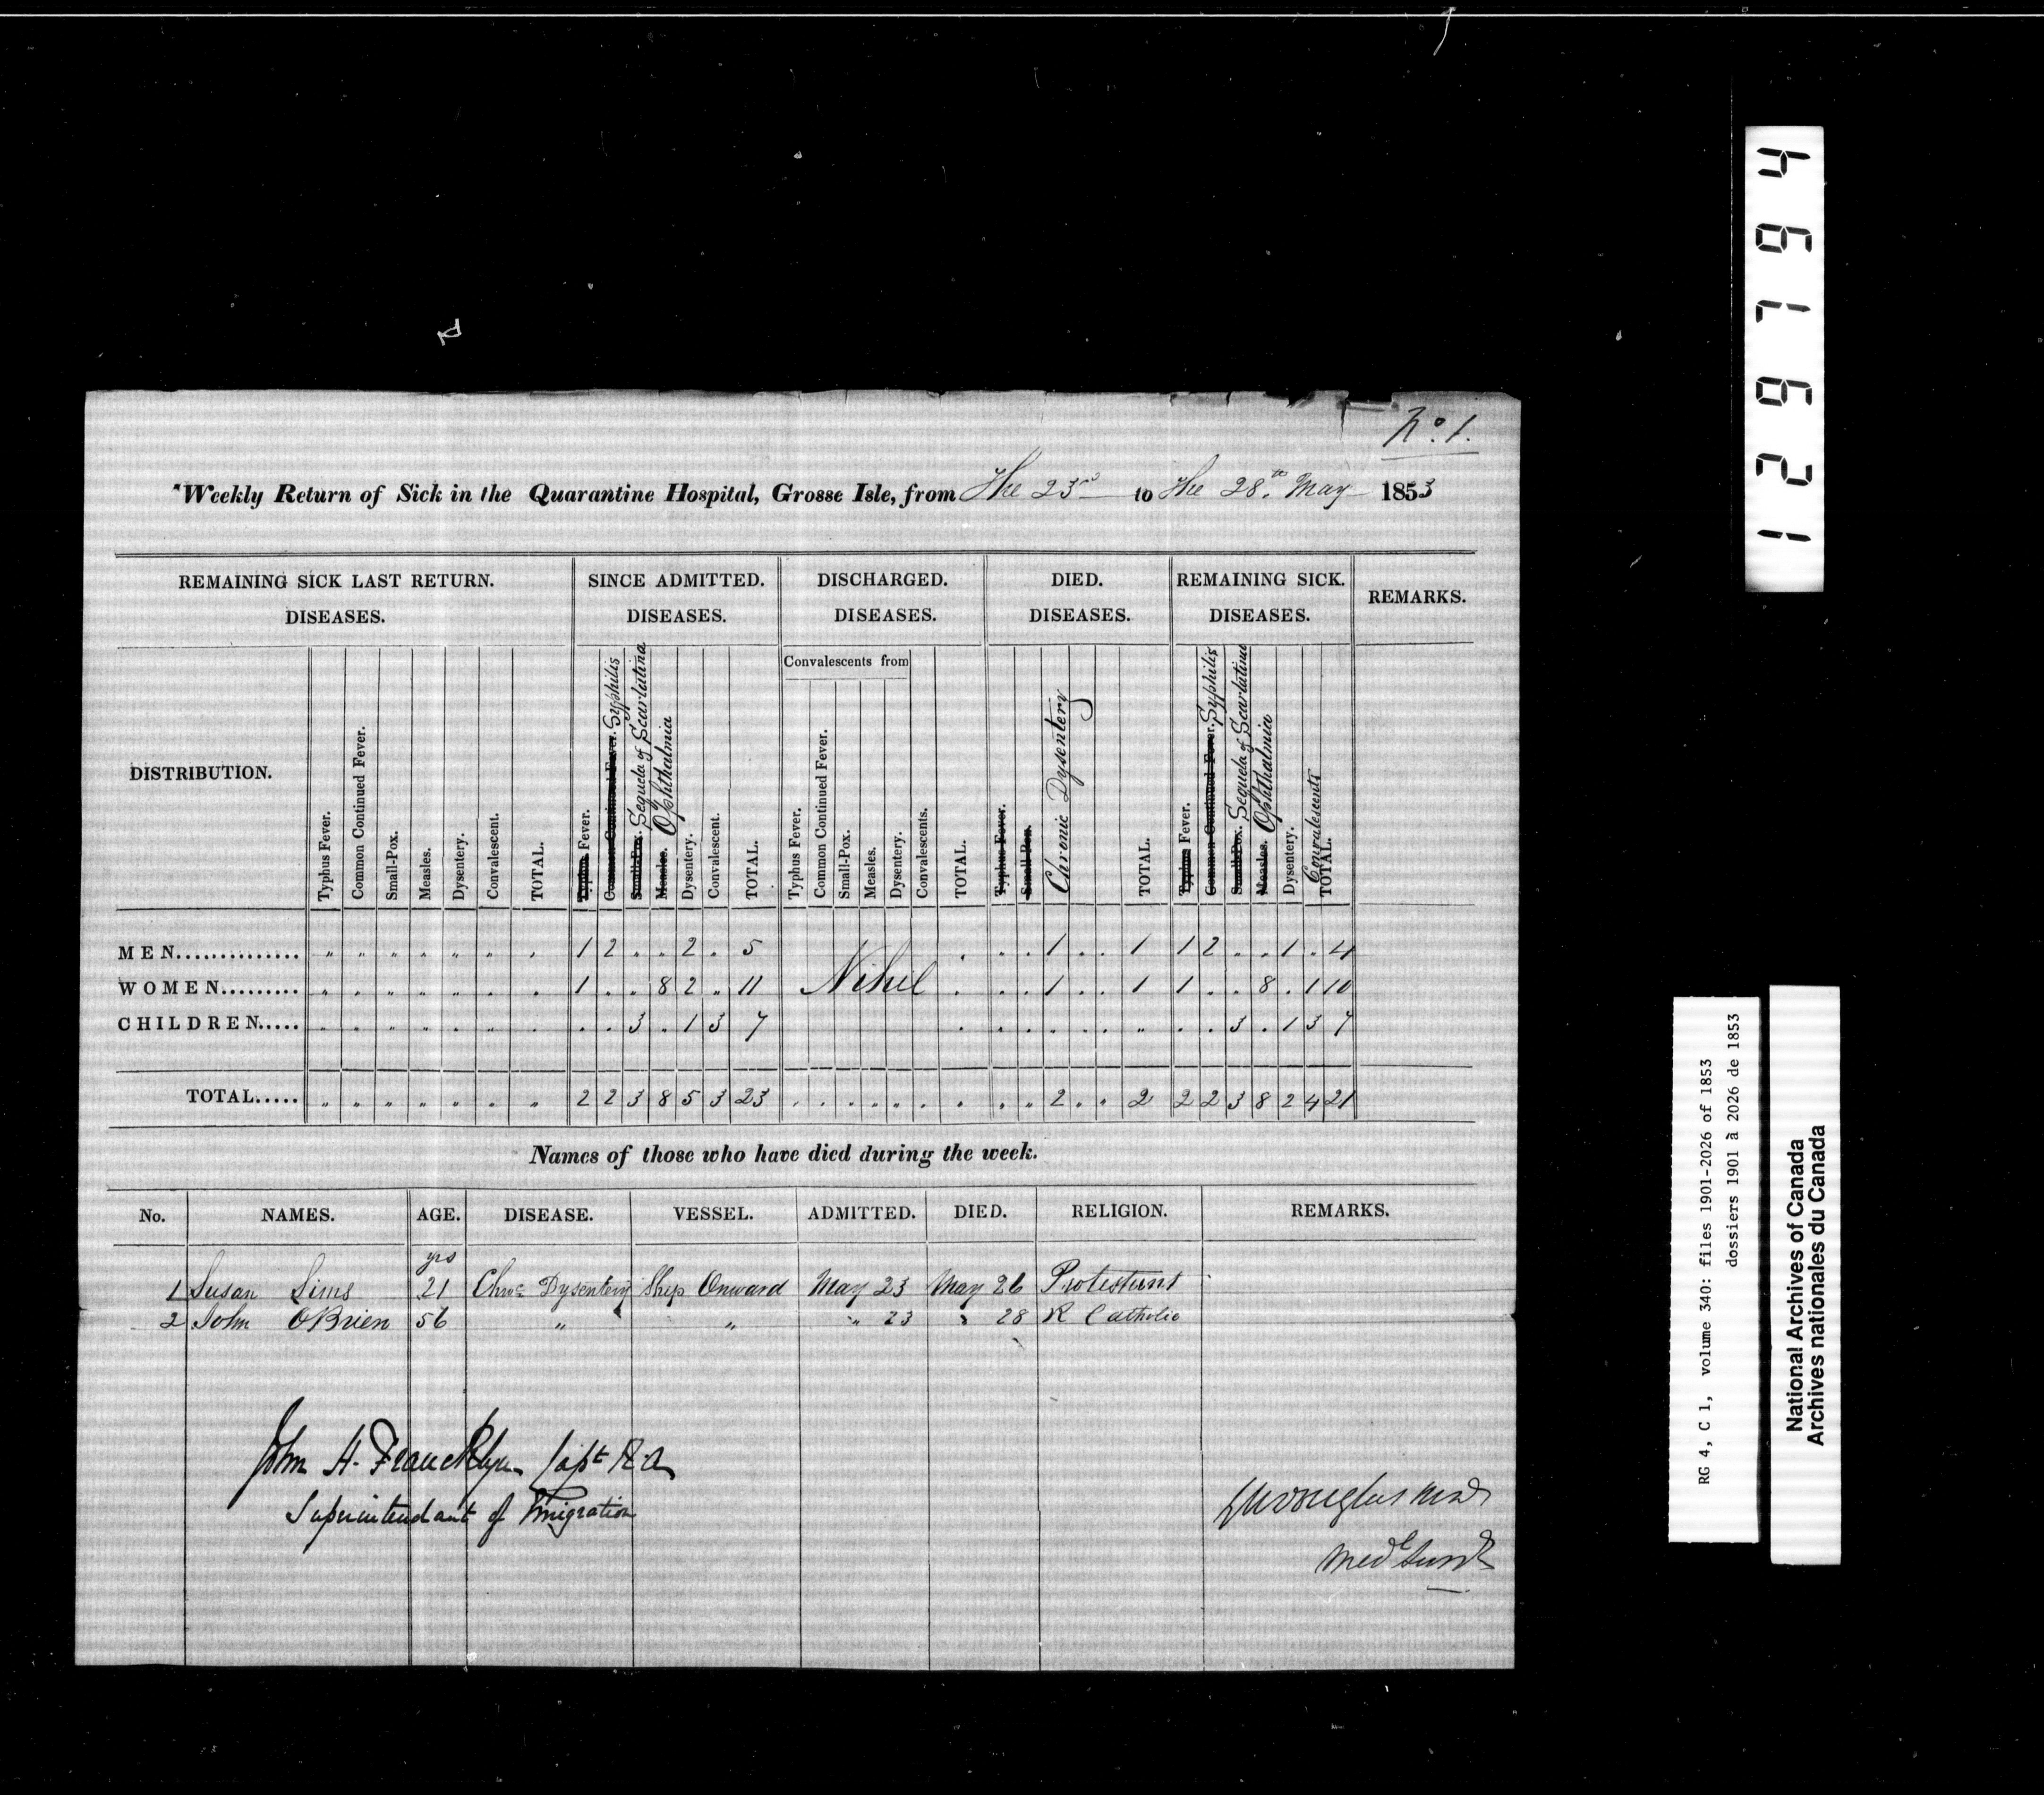 No. 1.
Weekly Return of Sick in the Quarantine Hospital, Grosse Isle, from The 23rd to The 28th May 1853
REMAINING SICK LAST RETURN. SINCE ADMITTED. DISCHARGED. DIED. REMAINING SICK. REMARKS.
DISEASES. DISEASES. DISEASES. DISEASES. DISEASES.
Convalescents from
DISTRIBUTION.
Typhus Fever.
Common Continued Fever.
Small-Pox.
Measles.
Dysentery.
Convalescent.
TOTAL.
Typhus Fever.
Common Continued Fever. Syphilis
Small-Pox. Sequela of Scarlatina
Measles. Ophthalmia
Dysentery.
Convalescent.
TOTAL.
Typhus Fever.
Common Continued Fever.
Small-Pox.
Measles.
Dysentery.
Convalescents.
TOTAL.
Typhus Fever.
Small Pox.
Chronic Dysentery
TOTAL.
Typhus Fever.
Common Continued Fever. Syphilis
Small-Pox. Sequela of Scarlatina
Measles. Ophthalmia
Dysentery.
Convalescents
TOTAL.
MEN.............. " " " " " " " 1 2 " " 2 " 5 " " " 1 " " 1 1 2 " " 1 " 4
WOMEN......... " " " " " " " 1 " " 8 2 " 11 Nihil " " " 1 " " 1 1 " " 8 " 1 10
CHILDREN..... " " " " " " " " " 3 " 1 3 7 " " " " " " " " " 3 " 1 3 7
TOTAL..... " " " " " " " 2 2 3 8 5 3 23 " " " " " " " " " 2 " " 2 2 2 3 8 2 4 21
Names of those who have died during the week.
No. NAMES. AGE. DISEASE. VESSEL. ADMITTED. DIED. RELIGION. REMARKS.
yrs
1 Susan Sims 21 Chroc Dysentery Ship Onward May 23 May 26 Protestant
2 John OBrien 56 " " " 23 " 28 R Catholic
John A. Francklyn Capt R.A
Superintendant of Emigration
GM Douglas MD
Medl Supdt
129194
RG 4, C 1, volume 340: files 1901-2026 of 1853
dossiers 1901 à 2026 de 1853
National Archives of Canada
Archives nationales du Canada